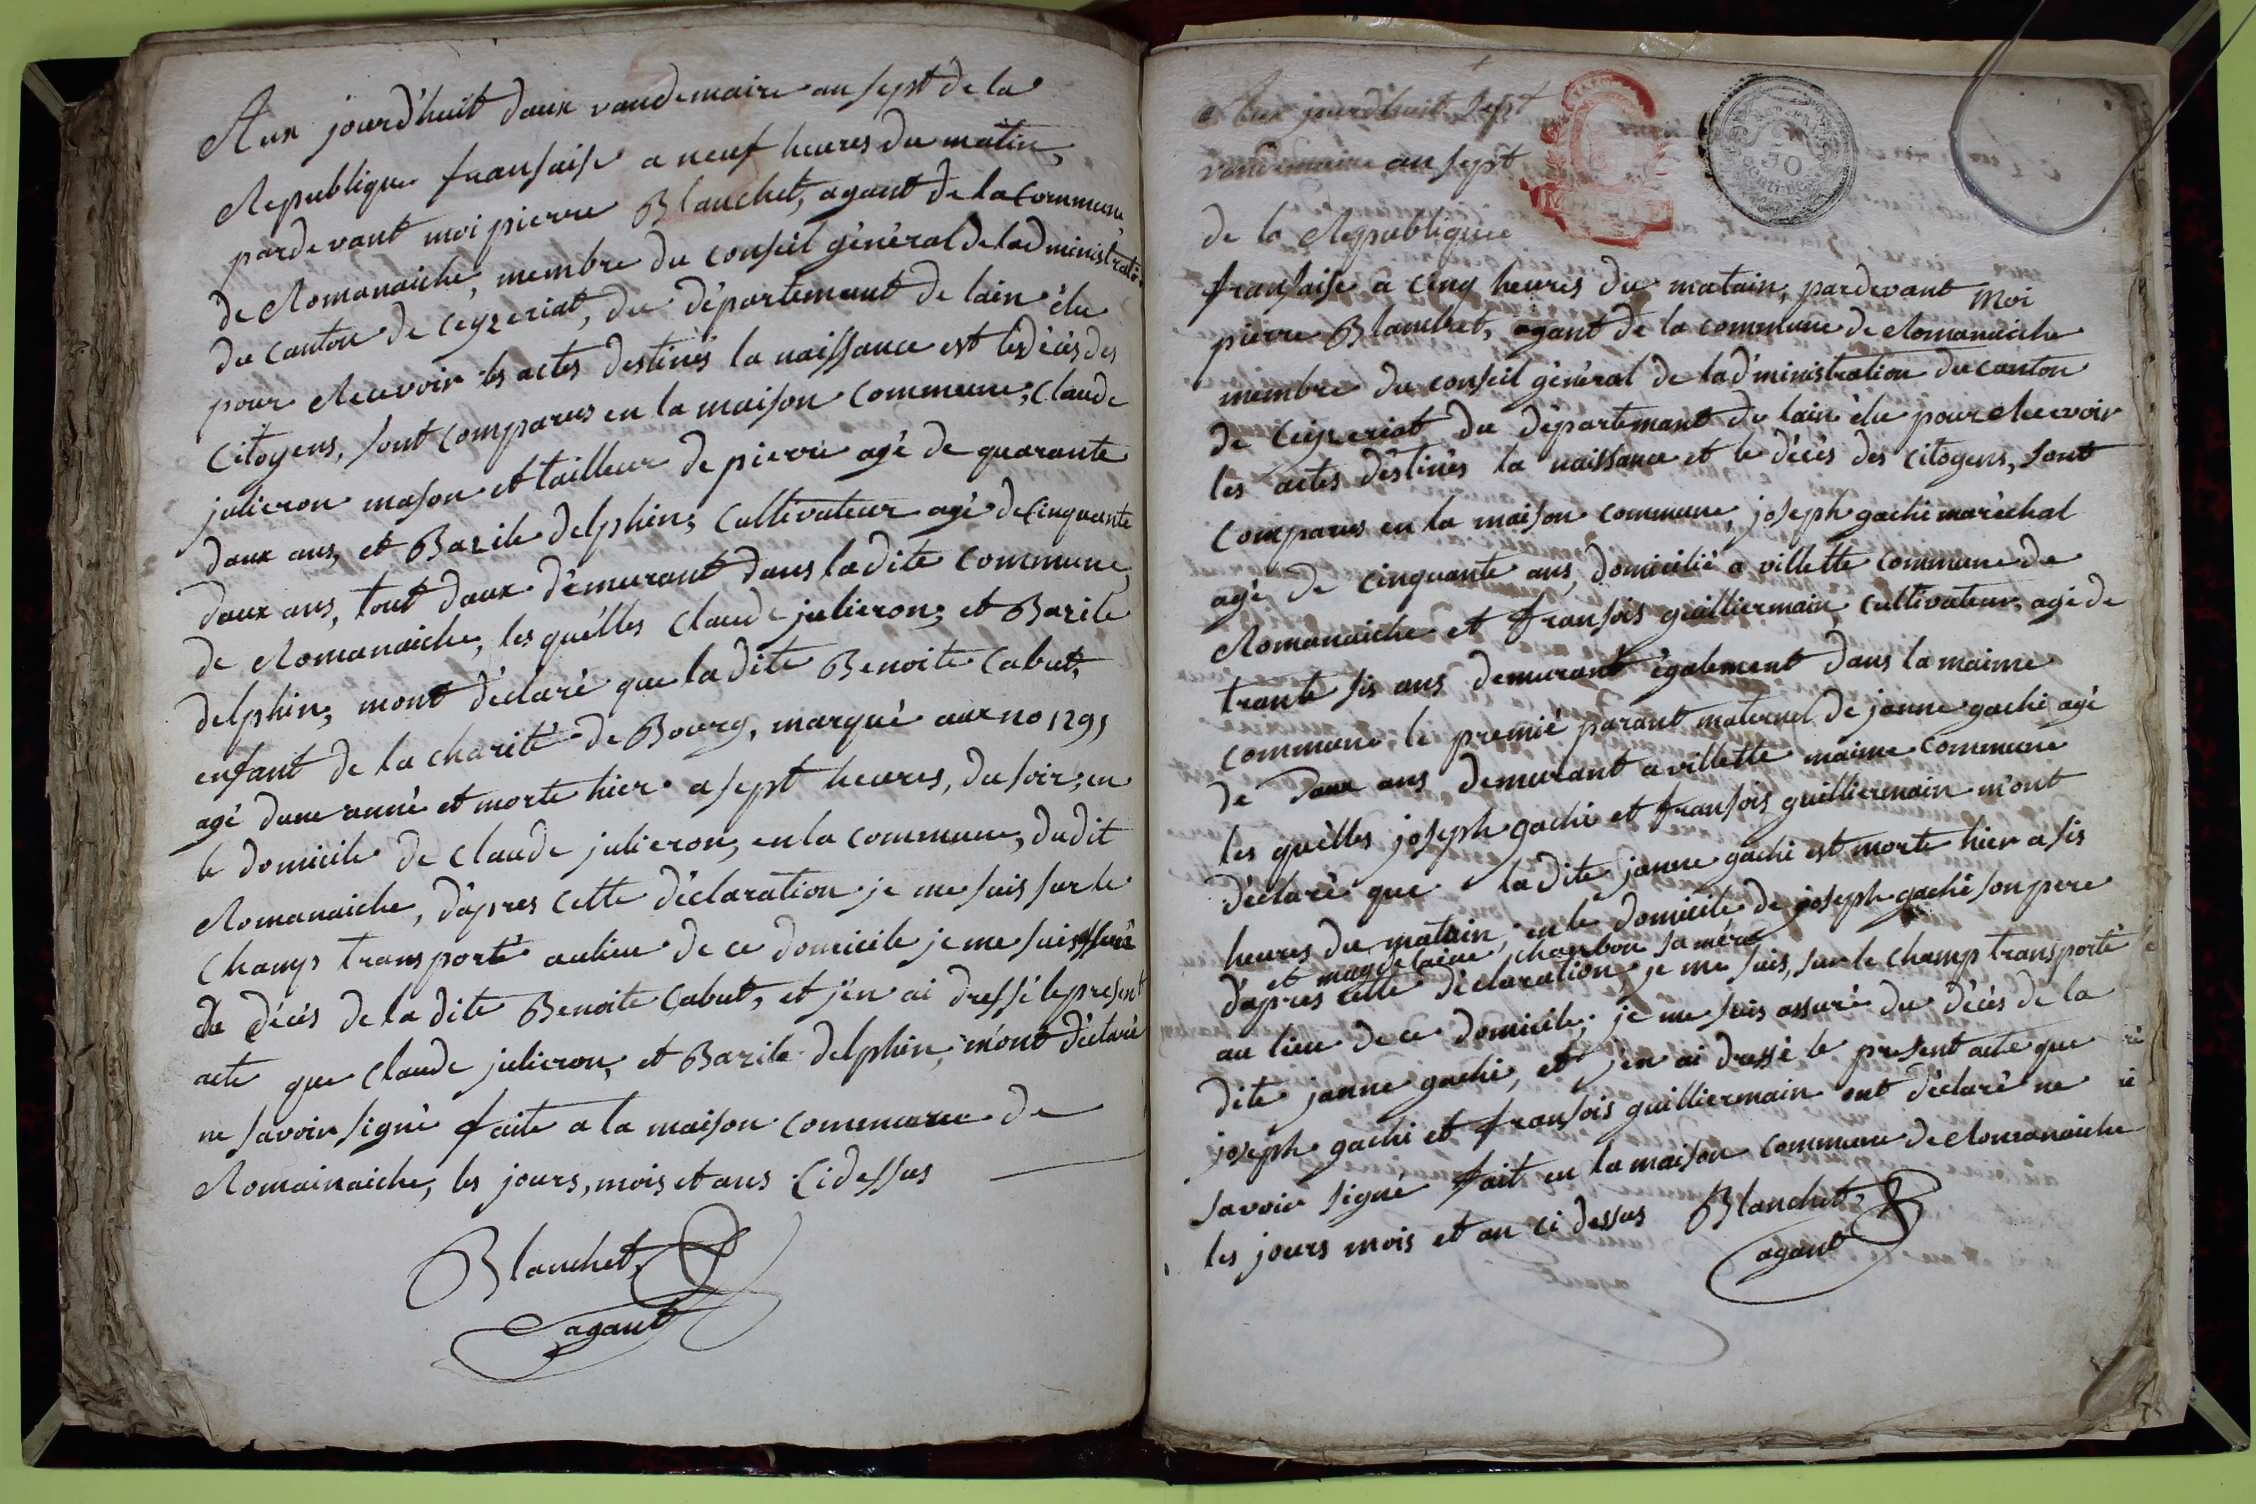 Aux jourd'huit daux vandemaire an sept de la
Republique fransaise a neuf heures du matin,
pardevant moi pierre Blanchet, agant de la commune
de Romanaiche, membre du conseil général de ladministratio
du canton de ceyzeriat, du département de lain élu
pour Recevoir les actes destinés la naissance est les décès des
citoyens, sont comparus en la maison commune, Claude
julieron mason et tailleur de pierre agé de quarante
daux ans, et Bazile delphin, cultivateur agé de cinquante
daux ans, tout daux démurant dans ladite commune
de Romanaiche, les quélles Claude julieron, et Bazile
delphin, mont déclaré que la dite Benoite Cabut,
enfant de la charité de Bourg, marqué aux no 1291
agé dune anné et morte hier a sept heures, du soir, en
le domicile de Claude julieron, en la commune, dudit
Romanaiche, dapres cette déclaration je me suis sur le
Champ transporté aulieu de ce domicile je me suis assuré
du décès de la dite Benoite Cabut, et j'en ai dressé le present
acte que Claude julieron, et Bazile delphin, m'ont déclaré
ne savoir signé faite a la maison commune de
Romainaiche, les jours, mois et ans cidessus
Blanchet
agant
Aux jourd'huit sept
vandemaire an sept
de la Republique
fransaise a cinq heures du matain, pardevant moi
pierre Blanchet, agant de la commune de Romanaiche
membre du conseil général de ladministration du canton
de Ceyzeriat du département de lain élu pour Recevoir
les actes déstinés la naissance et le décès des citoyens, sont
comparus en la maison commune, joseph gache maréchal
agé de cinquante ans, domicilié a villette commune de
Romanaiche et fransois guilliermain, cultivateur, agé de
trante sis ans demurant également dans la maime
commune, le premié parant maternel de janne gache agé
de daux ans demurant a villette maime commune
les quélles joseph gache et fransois guilliermain m'ont
déclaré que la dite janne gache est morte hier a sis
heures du matain, en le domicile de joseph gache son pere
et magdelaine charbon sa mére
dapres cette déclaration, je me suis, sur le champ transporté
au lieu de ce domicile, je me suis assuré du décès de la
dite janne gache, et j'en ai dressé le present acte que
joseph gache et fransois guilliermain ont déclaré ne
savoir signé fait en la maison commune de Romanaiche
les jours mois et an ci dessus Blanchet
agant